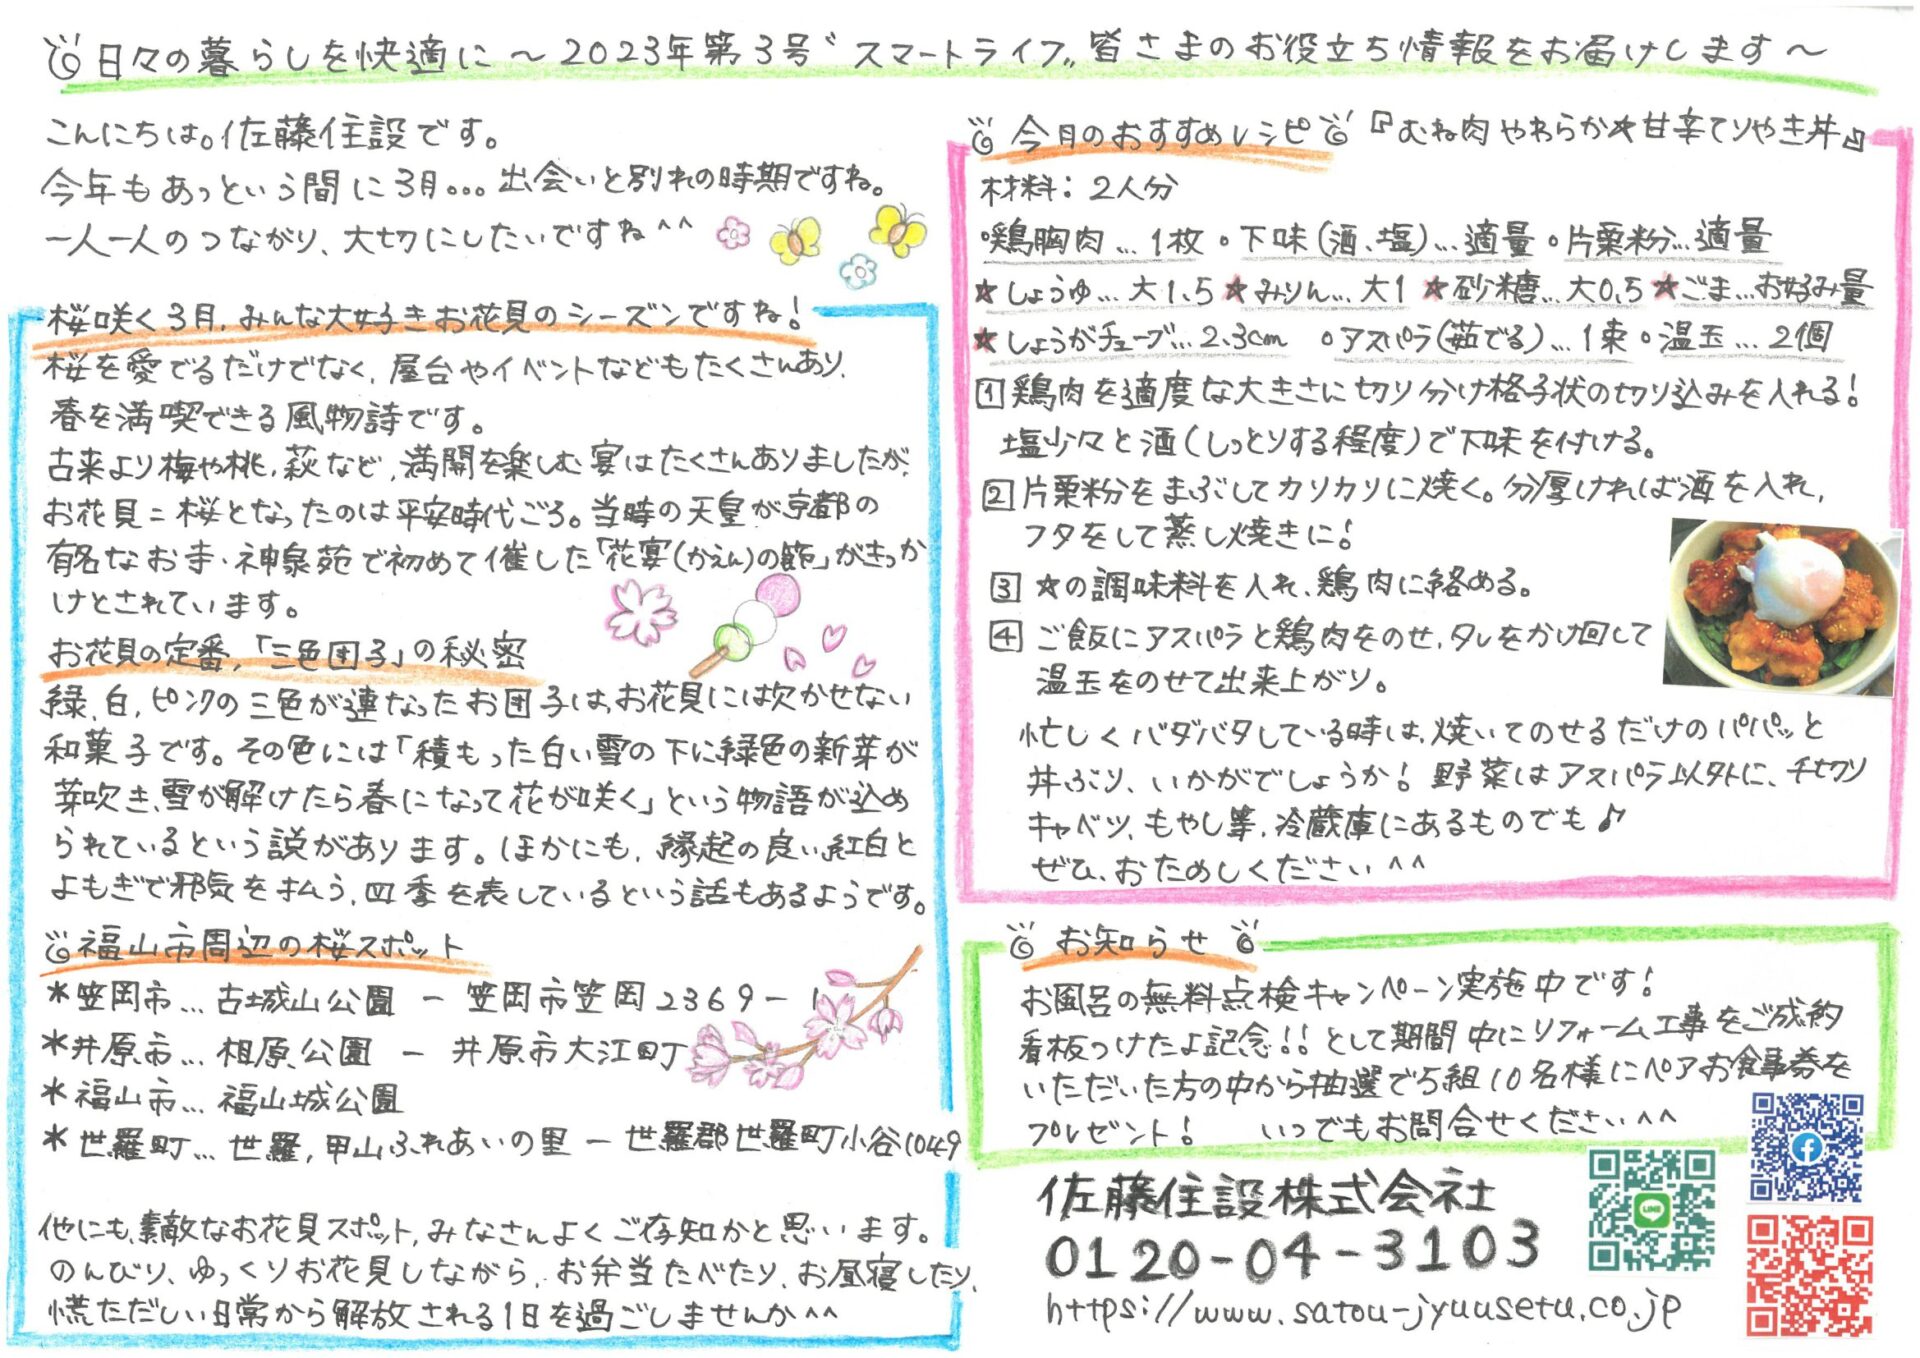 日々の暮らしを快適に～2023年第3号〝スマートライフ〟皆さまのお役立ち情報をお届けします～
こんにちは。佐藤住設です。
今年もあっという間に3月…出会いと別れの時期ですね。
一人一人のつながり、大切にしたいですね^^
桜咲く3月、みんな大好きお花見のシーズンですね！
桜を愛でるだけでなく、屋台やイベントなどもたくさんあり、
春を満喫できる風物詩です。
古来より梅や桃、萩など、満開を楽しむ宴はたくさんありましたが、
お花見＝桜となったのは平安時代ごろ。当時の天皇が京都の
有名なお寺・神泉苑で初めて催した「花宴(かえん)の節」がきっか
けとされています。
お花見の定番、「三色団子」の秘密
緑、白、ピンクの三色が連なったお団子は、お花見には欠かせない
和菓子です。その色には「積もった白い雪の下に緑色の新芽が
芽吹き、雪が解けたら春になって花が咲く」という物語が込め
られているという説があります。ほかにも、縁起の良い紅白と
よもぎで邪気を払う、四季を表しているという話もあるようです。
福山市周辺の桜スポット
*笠岡市…古城山公園 － 笠岡市笠岡2369－1
*井原市…相原公園 － 井原市大江町
*福山市…福山城公園
*世羅町…世羅，甲山ふれあいの里 － 世羅郡世羅町小谷1049
他にも、素敵なお花見スポット、みなさんよくご存知かと思います。
のんびり、ゆっくりお花見しながら、お弁当たべたり、お昼寝したり、
慌ただしい日常から解放される1日を過ごしませんか^^
今月のおすすめレシピ 『むね肉やわらか☆甘辛てりやき丼』
材料：2人分
◦鶏胸肉…1枚 ◦下味(酒、塩)…適量 ◦片栗粉…適量
★しょうゆ…大1.5 ★みりん…大1 ★砂糖…大0.5 ★ごま…お好み量
★しょうがチューブ…2.3cm ◦アスパラ(茹でる)…1束 ◦温玉…2個
1 鶏肉を適度な大きさに切り分け格子状の切り込みを入れる！
塩少々と酒(しっとりする程度)で下味を付ける。
2 片栗粉をまぶしてカリカリに焼く。分厚ければ酒を入れ、
フタをして蒸し焼きに！
3 ☆の調味料を入れ、鶏肉に絡める。
4 ご飯にアスパラと鶏肉をのせ、タレをかけ回して
温玉をのせて出来上がり。
忙しくバダバタしている時は、焼いてのせるだけのパパッと
丼ぶり、いかがでしょうか！野菜はアスパラ以外に、千切り
キャベツ、もやし等、冷蔵庫にあるものでも♪
ぜひ、おためしください^^
お知らせ
お風呂の無料点検キャンペーン実施中です！
看板つけたよ記念！！として期間中にリフォーム工事をご成約
いただいた方の中から抽選で5組10名様にペアお食事券を
プレゼント！ いつでもお問合せください^^
佐藤住設株式会社
0120-04-3103
https://www.satou-jyuusetu.co.jp
LINE